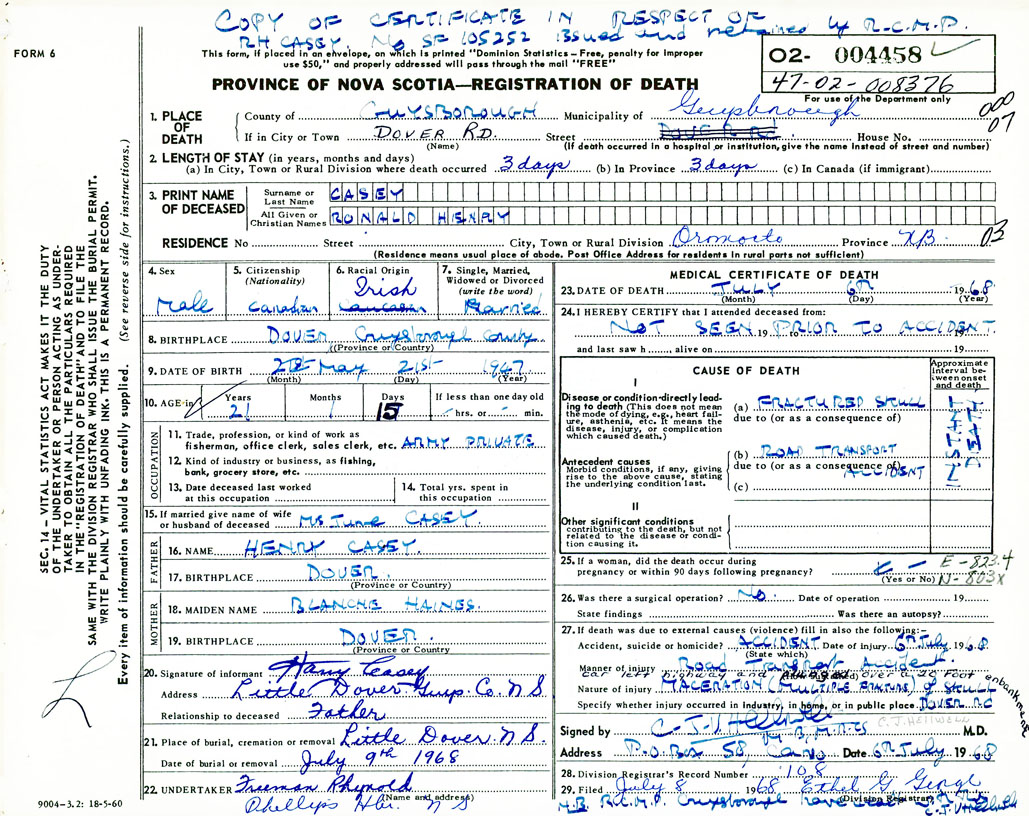 COPY OF CERTIFICATE IN RESPECT OF
RH CASEY. No SF 105252 issued and retained by R.C.M.P.
FORM 6
This form, if placed in an envelope, on which is printed "Dominion Statistics – Free, penalty for improper
use $50," and properly addressed will pass through the mail "FREE"
02- 004458
47-02-008376
For use of the Department only
PROVINCE OF NOVA SCOTIA—REGISTRATION OF DEATH
000
07
1. PLACE OF DEATH
County of GUYSBOROUGH Municipality of Guysborough
If in City or Town DOVER RD. Street House No.
(Name) (If death occurred in a hospital or institution, give the name instead of street and number)
2. LENGTH OF STAY (in years, months and days)
(a) In City, Town or Rural Division where death occurred 3 days (b) In Province 3 days (c) In Canada (if immigrant)
3. PRINT NAME OF DECEASED
Surname or Last Name CASEY
All Given or Christian Names RONALD HENRY
RESIDENCE No Street City, Town or Rural Division Oromocto Province NB 03
(Residence means usual place of abode. Post Office Address for residents in rural parts not sufficient)
4. Sex Male
5. Citizenship (Nationality) Canadian
6. Racial Origin Irish Caucasian
7. Single, Married, Widowed or Divorced (write the word) Married
8. BIRTHPLACE DOVER Guysborough County
(Province or Country)
9. DATE OF BIRTH May 21st 1947
(Month) (Day) (Year)
10. AGE in Years 21 Months 1 Days 15 If less than one day old
hrs. or min.
OCCUPATION
11. Trade, profession, or kind of work as
fisherman, office clerk, sales clerk, etc. ARMY PRIVATE
12. Kind of industry or business, as fishing,
bank, grocery store, etc.
13. Date deceased last worked
at this occupation
14. Total yrs. spent in
this occupation
15. If married give name of wife
or husband of deceased Ms June CASEY.
FATHER
16. NAME HENRY CASEY.
17. BIRTHPLACE DOVER.
(Province or Country)
MOTHER
18. MAIDEN NAME BLANCHE HAINES.
19. BIRTHPLACE DOVER.
(Province or Country)
20. Signature of informant Harry Casey
Address Little Dover Guys. Co. N S
Relationship to deceased Father
21. Place of burial, cremation or removal Little Dover. N S.
Date of burial or removal July 9th 1968
22. UNDERTAKER Freeman Rhynold
(Name and address)
N S
9004–3.2: 18-5-60
MEDICAL CERTIFICATE OF DEATH
23. DATE OF DEATH JULY 6th 1968
(Month) (Day) (Year)
24. I HEREBY CERTIFY that I attended deceased from:
NOT SEEN 19 PRIOR TO ACCIDENT 19
and last saw h , alive on 19
CAUSE OF DEATH
Approximate interval between onset and death
I
Disease or condition directly leading to death (This does not mean
the mode of dying, e.g., heart failure, asthenia, etc. It means the
disease, injury, or complication
which caused death.)
(a) FRACTURED SKULL
due to (or as a consequence of)
INSTANT DEATH
Antecedent causes
Morbid conditions, if any, giving
rise to the above cause, stating
the underlying condition last.
(b) ROAD TRANSPORT
due to (or as a consequence of) ACCIDENT
(c)
II
Other significant conditions
contributing to the death, but not
related to the disease or condition causing it.
25. If a woman, did the death occur during
pregnancy or within 90 days following pregnancy?
(Yes or No)
E-823.4
N-803x
26. Was there a surgical operation? No. Date of operation 19
State findings Was there an autopsy?
27. If death was due to external causes (violence) fill in also the following:–
Accident, suicide or homicide? ACCIDENT Date of injury 6th July 1968
(State which)
Manner of injury Road Transport Accident.
car left highway and over a 20 foot enbankment
Nature of injury MACERATION (MULTIPLE FRACTURE) of SKULL
Specify whether injury occurred in industry, in home, or in public place. DOVER RD
Signed by C-J-V Hellwell C.J. HELLWELL M.D.
Address P.O. Box 58 Canso Date 6th July 1968
28. Division Registrar's Record Number 108
29. Filed July 8 1968 Ethel G
(Division Registrar)
N.B. R.C.M.P. Guysborough have
SEC. 14 – VITAL STATISTICS ACT MAKES IT THE DUTY
OF THE UNDERTAKER OR PERSON ACTING AS UNDERTAKER TO OBTAIN ALL THE PARTICULARS REQUIRED
IN THE "REGISTRATION OF DEATH" AND TO FILE THE
SAME WITH THE DIVISION REGISTRAR WHO SHALL ISSUE THE BURIAL PERMIT.
WRITE PLAINLY WITH UNFADING INK. THIS IS A PERMANENT RECORD.
Every item of information should be carefully supplied. (See reverse side for instructions.)